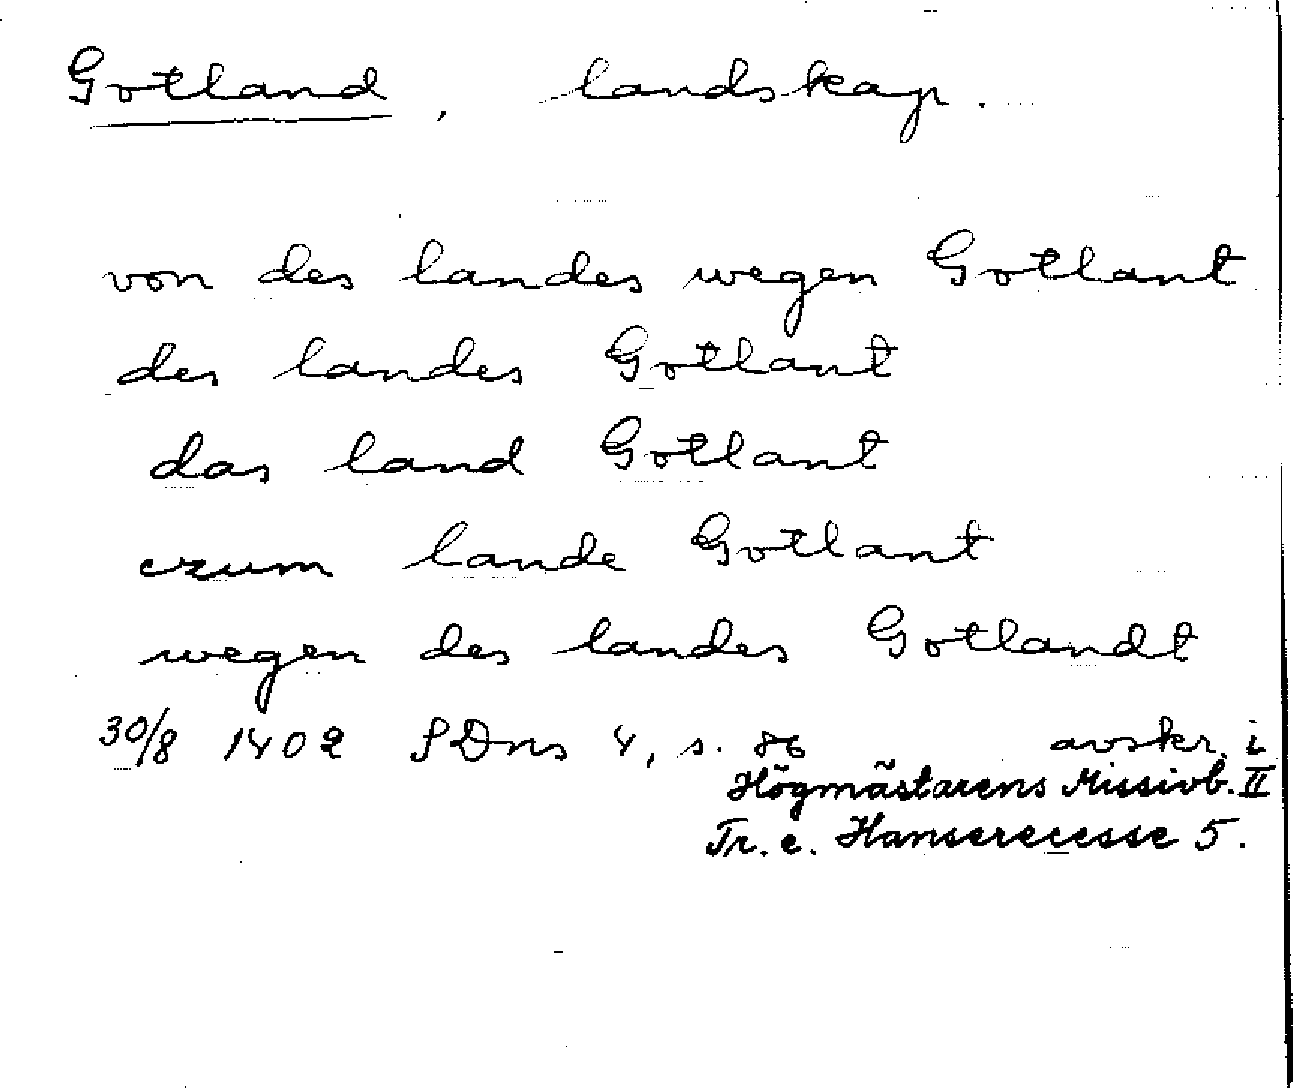 Gotland, landskap.
von des landes wegen Gotlant
des landes Gotlant
das land Gotlant
czum lande Gotlant
wegen des landes Gotlandt
30/8 1402 SDns 4, s. 86 avskr. i
Högmästarens Missivb. II
Tr. e. Hanserecesse 5.